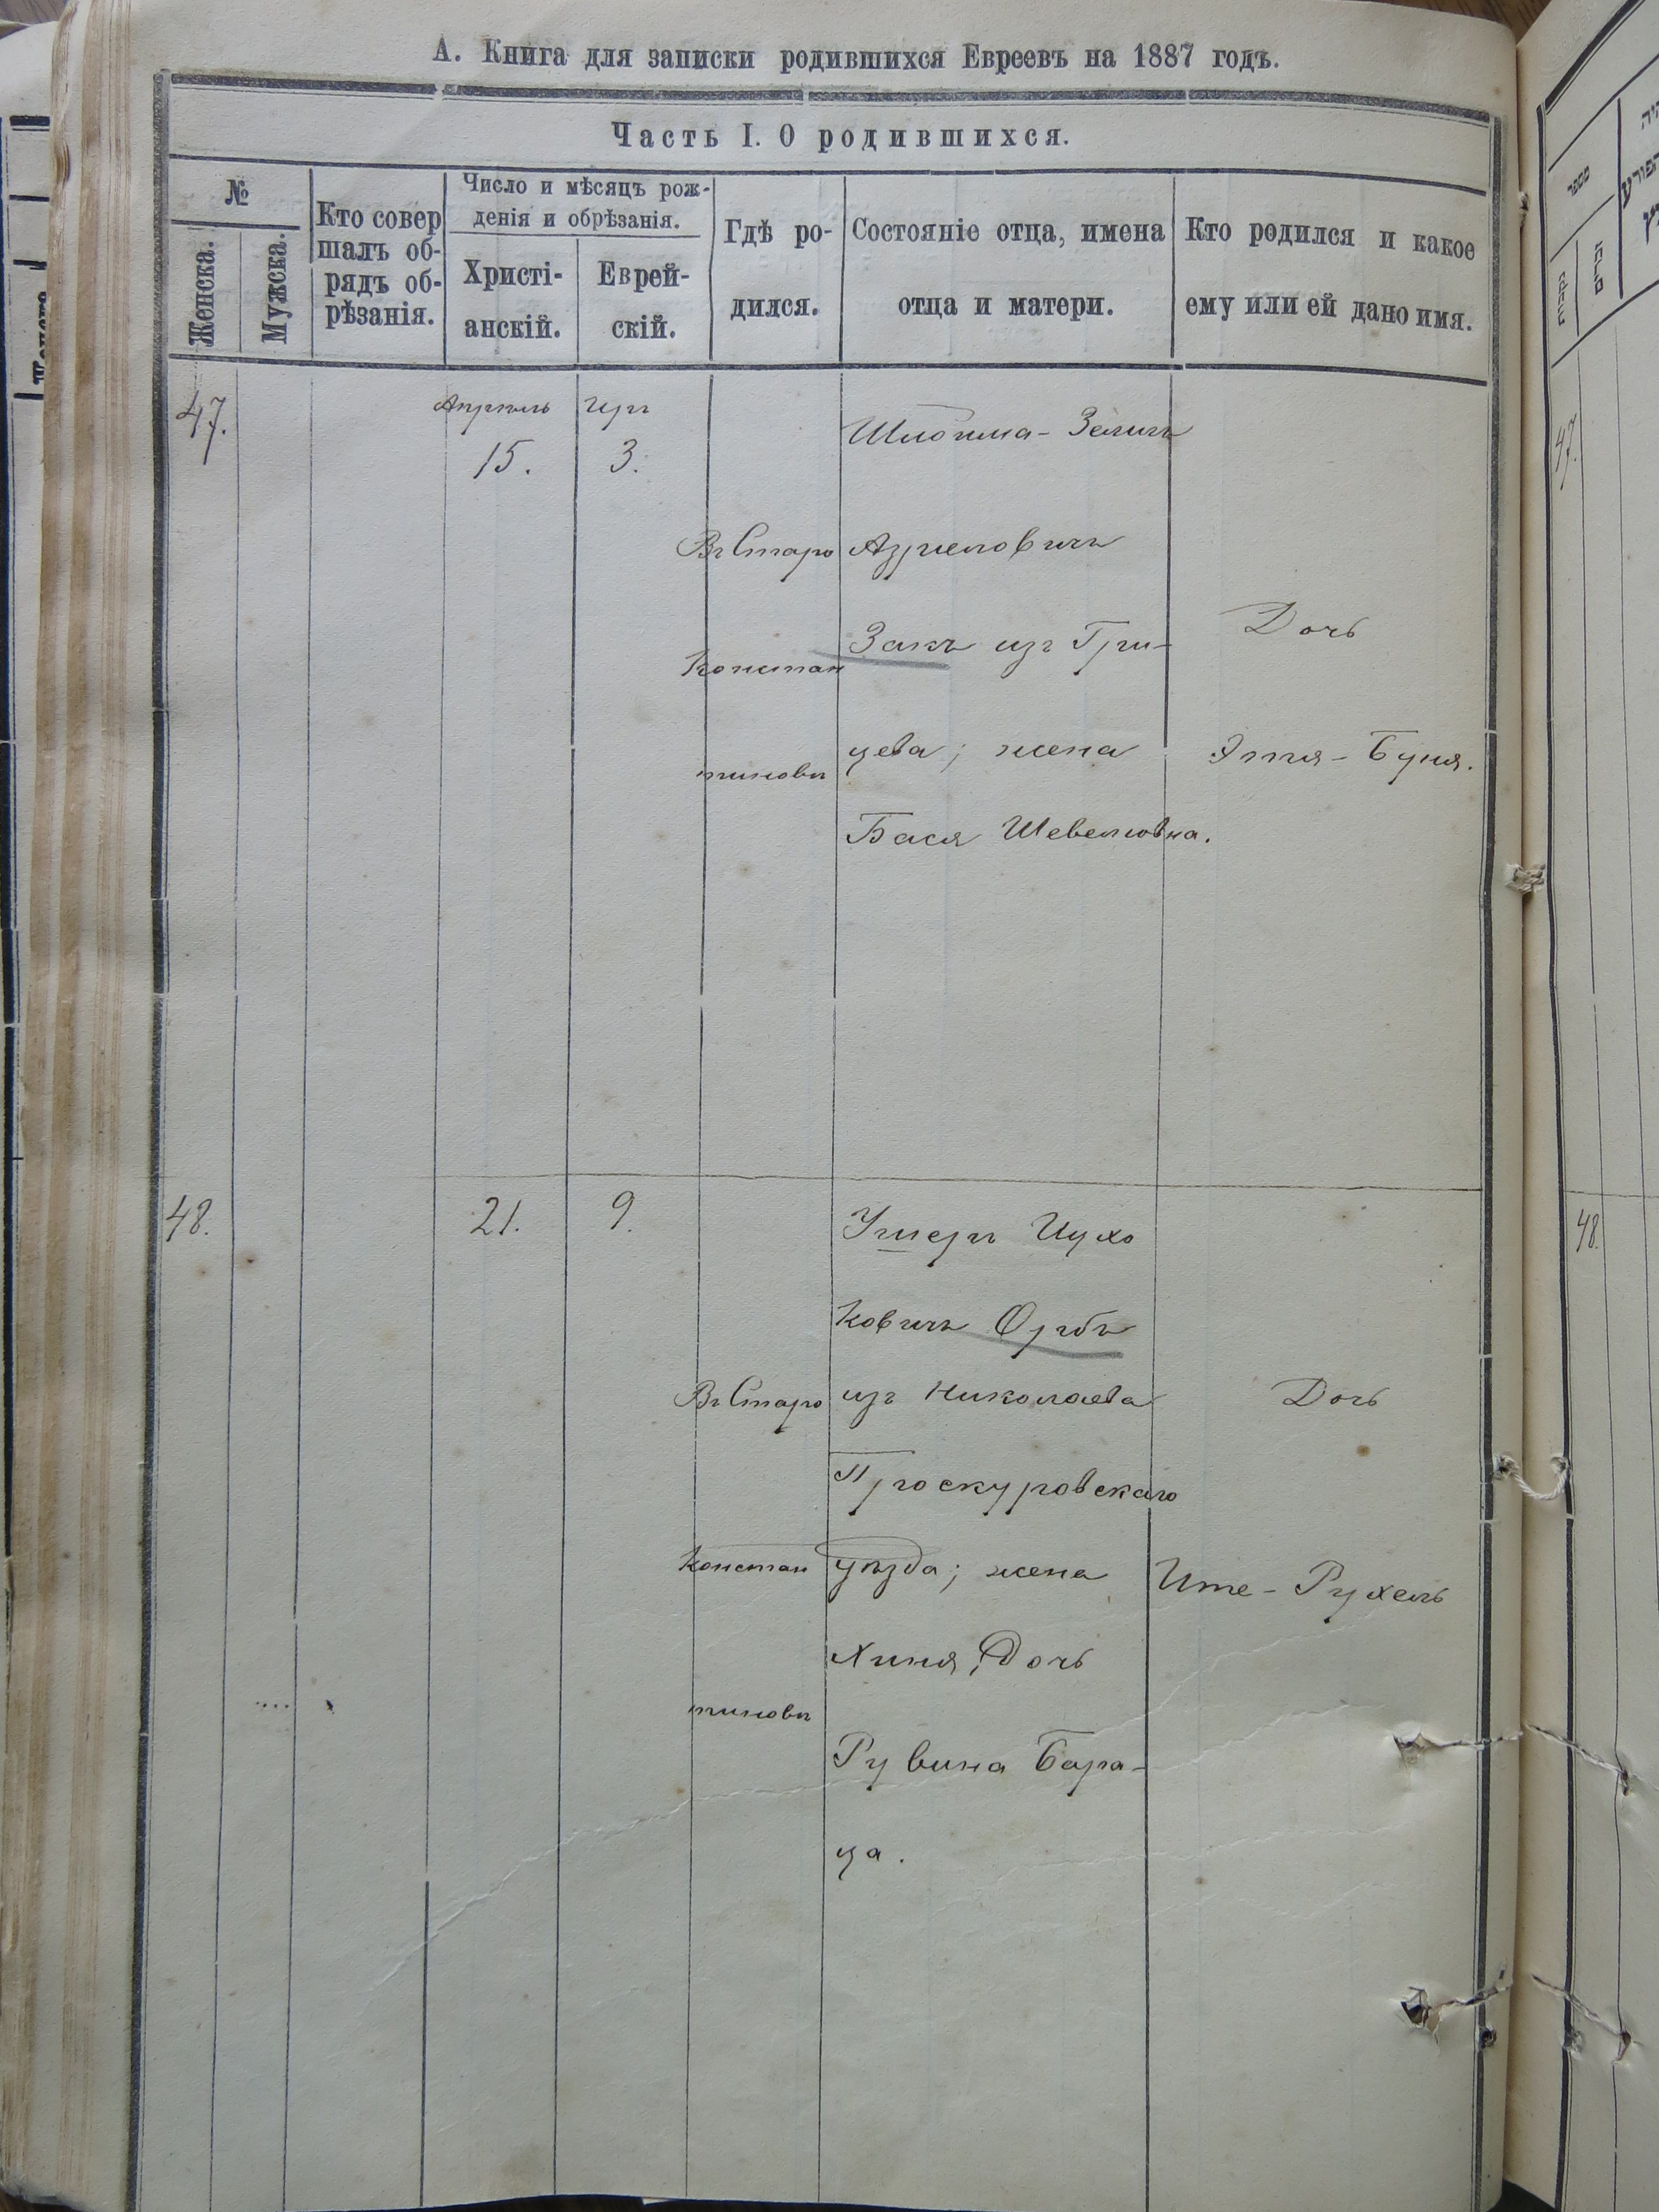 А. Книга для записки родившихся Евреевъ на 1887 годъ.
Часть I. О родившихся.
№
Женска.
Мужска.
Кто совер
шалъ об-
рядъ об-
рѣзанія.
Число и мѣсяцъ рож-
денія и обрѣзанія.
Христі-
анскій.
Еврей-
скій.
Гдѣ ро-
дился.
Состояніе отца, имена
отца и матери.
Кто родился и какое
ему или ей дано имя.
47.
Апрель
15.
Iyръ
3.
Въ Старо
констан
тиновѣ
Шлоима-Зелигъ
Азриловичъ
Закъ изъ Гри-
цева; жена
Бася Шевелiовна.
Дочь
Этя-Буня.
48.
21.
9.
Въ Старо
констан
тиновѣ
Ушеръ Ицхо
ковичъ Орбъ
изъ Николаева
Проскуровскаго
уѣзда; жена
Хиня, Дочь
Рувина Бара-
ца.
Дочь
Ите-Рухель
47.
48.
מספר